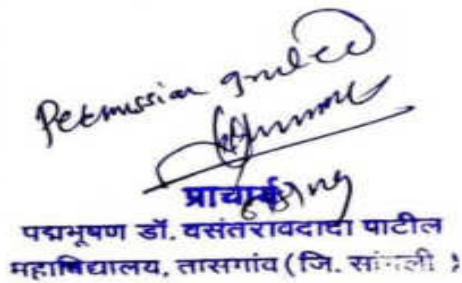 Permission granted
प्राचार्य
पद्मभूषण डॉ. वसंतरावदादा पाटील
महाविद्यालय, तासगांव (जि. सांगली )